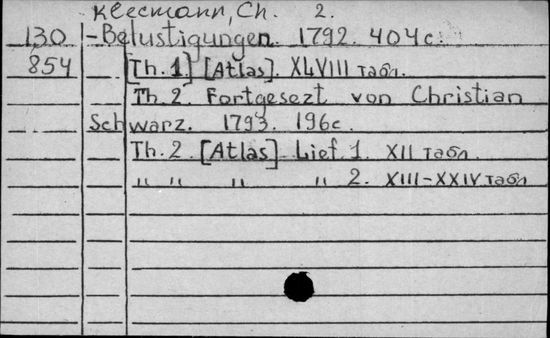 Kleemann, Ch. 2.
130 -Belustigungen. 1792. 404 c.
854 Th. 1] [Atlas]. XLVIII табл.
Th. 2. Fortgesezt von Christian
Schwarz. 1793. 196 c.
Th. 2. [Atlas] Lief. 1. XII табл.
" " " " 2. XIII-XXIV табл